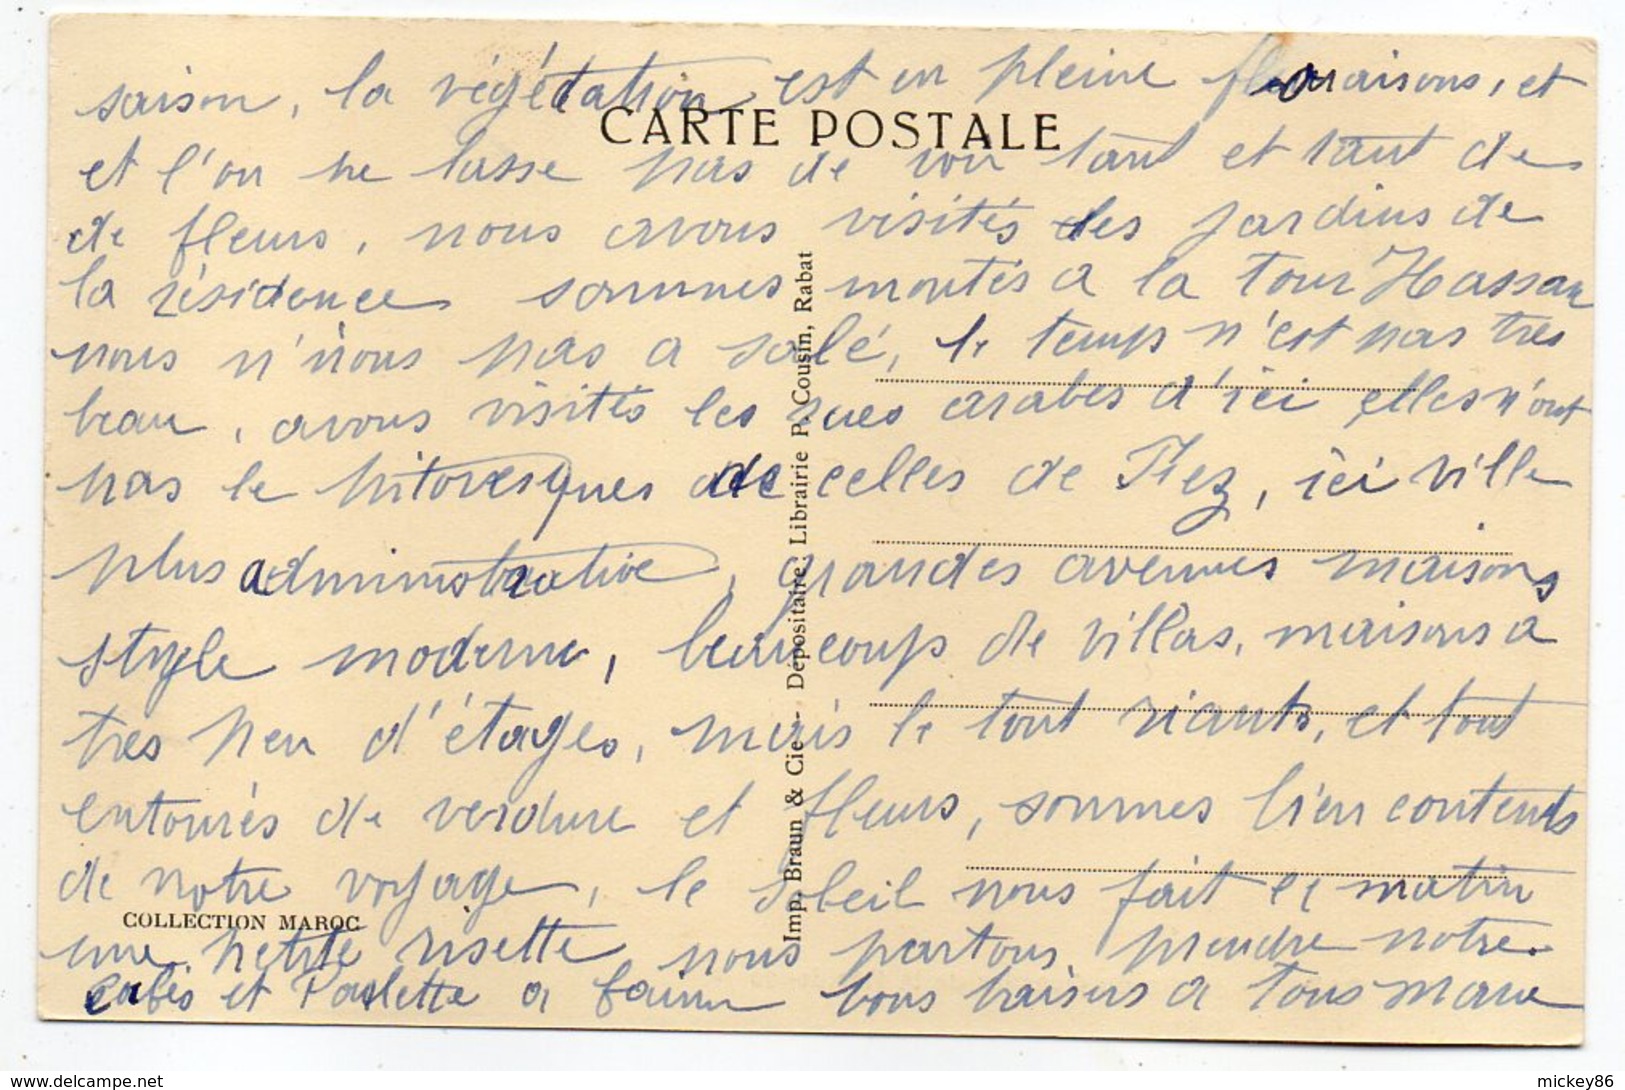 saison, la végétation est en pleine floraisons, et
CARTE POSTALE
et l'on ne lasse pas de voir tant et tant de
de fleurs, nous avons visités les jardins de
la résidence sommes montés a la tour Hassan
nous n'irons pas a salé, le temps n'est pas tres
beau, avons visités les rues arabes d'ici elles n'ont
pas le pitoresques de celles de Fez, ici ville
plus administrative, grandes avenues maisons
style moderne, beaucoup de villas, maisons a
tres peu d'étages, mais le tout riants, et tout
entourés de verdure et fleurs, sommes bien contents
de notre voyage, le soleil nous fait ce matin
COLLECTION MAROC
une petite risette nous partons prendre notre
et Paulette a faim bons baisers a tous
Imp. Braun & Cie - Dépositaire: Librairie P. Cousin, Rabat
mickey86